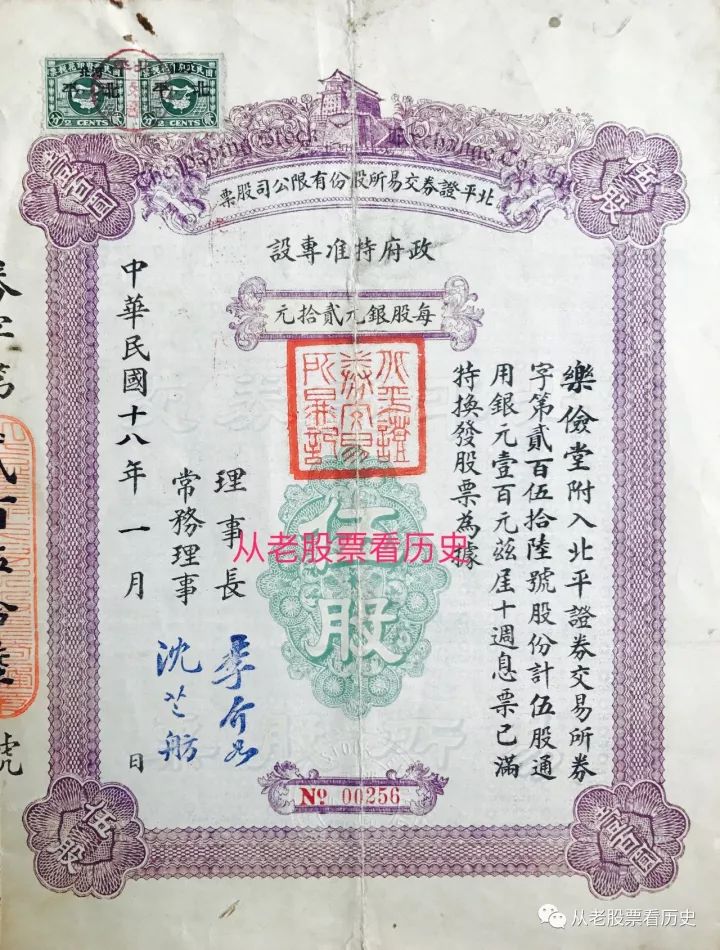 北平
2 CENTS
北平
2 CENTS
The Peping Stock Exchange Co., Ltd.
北平證券交易所股份有限公司股票
壹百圓
伍股
政府特准專設
每股銀元貳拾元
樂儉堂附入北平證券交易所券
字第貳百伍拾陸號股份計伍股通
用銀元壹百元茲屆十週息票已滿
特換發股票為據
北平證券交易所
伍股
理事長
常務理事
沈芝舫
中華民國十八年一月
日
券字第貳百伍拾陸號
从老股票看历史
No 00256
伍股
壹百圓
从老股票看历史